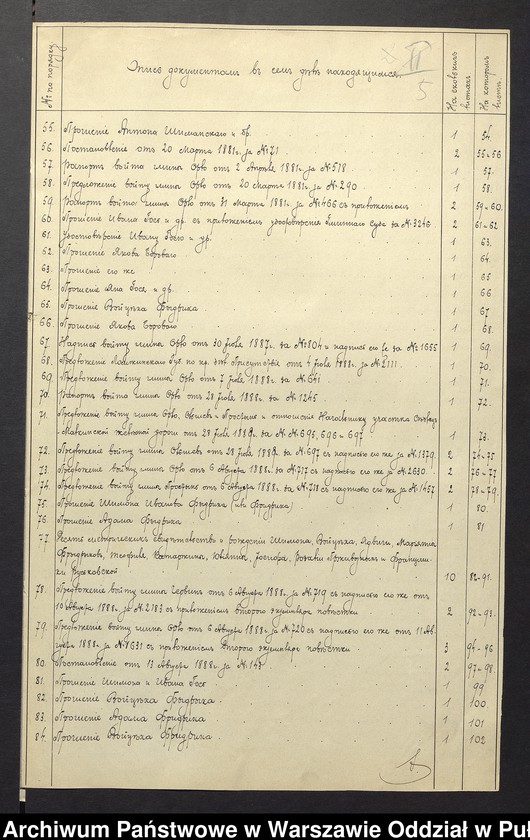 № по порядку
Опись документамъ въ семъ дѣлѣ находящимся.
II
5
На сколькихъ листахъ
На которыхъ листѣ
55. Прошеніе Антона Шиманскаго и др. 1 54.
56. Постановленіе отъ 20 Марта 1881г. за №71 2 55-56
57. Рапортъ войта гмины Орло отъ 2 Апрѣля 1881г. за №518 1 57.
58. Предложеніе войту гмины Орло отъ 20 Марта 1881г. за №290 1 58.
59. Рапортъ войта гмины Орло отъ 31 Марта 1881г. за №466 съ приложеніемъ 2 59-60.
60. Прошеніе Ивана Гося и др. съ приложеніемъ удостовѣренія Гминнаго Суда за №3246 2 61-62
61. Удостовѣреніе Ивану Госю и др. 1 63.
62. Прошеніе Якова 1 64.
63. Прошеніе его же 1 65
64. Прошеніе Яна Гося и др. 1 66
65. Прошеніе Войцѣха Фридриха 1 67
66. Прошеніе Якова 1 68.
67. Надпись войту гмины Орло отъ 30 Іюля 1887г. за №1804 и надписи его же за №1655 1 69.
68. Предложеніе Губ. по кр. дѣл. Присутствія отъ 4 Іюля 1888г. за №2111. 1 70.
69. Предложеніе войту гмины Орло отъ 7 Іюля 1888г. за №641 1 71.
70. Рапортъ войта гмины Орло отъ 28 Іюля 1888г. за №1245 1 72.
71. Предложеніе войту гмины Орло, и и отношенія Начальнику участка
желѣзной дороги отъ 28 Іюля 1888г. за №№ 695, 696 и 697. 1 73.
72. Предложеніе войту гмины отъ 28 Іюля 1888г. за №697 съ надписью его же за №1379. 2 74-75
73. Предложеніе войту гмины Орло отъ 6 Августа 1888г. за №717 съ надписью его же за №2630. 2 76-77
74. Предложеніе войту гмины отъ 6 Августа 1888г. за №718 съ надписью его же за №1457 2 78-79.
75. Прошеніе Шимона Иванова Фридриха (или Фридриха) 1 80.
76. Прошеніе Адама Фридриха 1 81
77. метрическихъ свидѣтельствъ о рожденіи Шимона, Войцѣха, Ядвиги, Маріанны
Фридриховъ, Теофили, Катаржины, Юліанны, Іосифа, Розаліи и Францишки
10 82-91.
78. Предложеніе войту гмины Червинъ отъ 6 Августа 1888г. за №719 съ надписью его же отъ
16 Августа 1888г. за №2183 съ приложеніемъ второго экземпляра повѣстки 2 92-93.
79. Предложеніе войту гмины Орло отъ 6 Августа 1888г. за №720 съ надписью его же отъ 11 Ав-
густа 1888г. за №1631 съ приложеніемъ второго экземпляра повѣстки 3 94-96
80. Постановленіе отъ 13 Августа 1888г. за №143 2 97-98.
81. Прошеніе Шимона и Ивана Гося 1 99
82. Прошеніе Войцѣха Фридриха 1 100
83. Прошеніе Адама Фридриха 1 101
84. Прошеніе Войцѣха Фридриха 1 102
Archiwum Państwowe w Warszawie Oddział w Puł